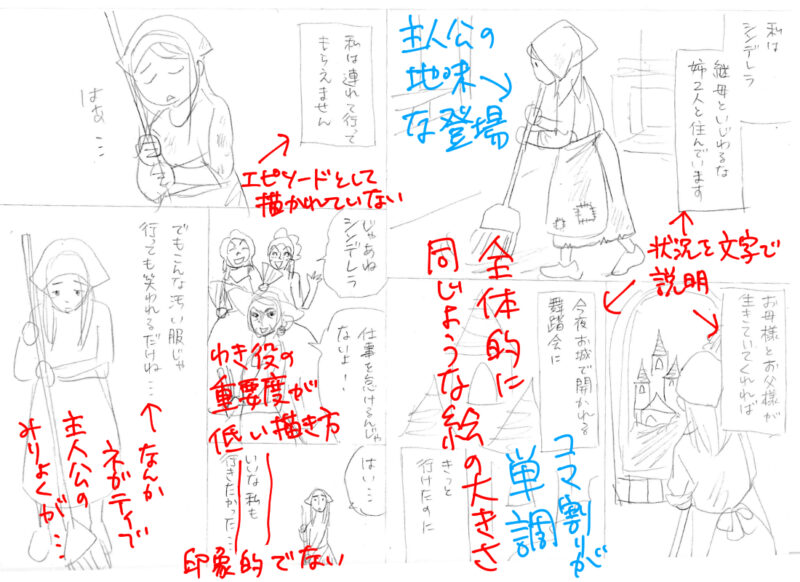 私は
シンデレラ
継母といじわるな
姉2人と住んでいます
主人公の
地味
な登場
状況を文字で
説明
お母様とお父様が
生きていてくれれば
今夜お城で開かれる
舞踏会に
きっと
行けたのに
全体的に
同じような絵の大きさ
コマ割りが
単調
私は連れて行って
もらえません
はぁ…
エピソードとして
描かれていない
じゃあね
シンデレラ
仕事を怠けるんじゃ
ないよ!
わき役の
重要度が
低い描き方
はい…
いいな私も
行きたかった…
印象的でない
でもこんな汚い服じゃ
行っても笑われるだけね…
なんか
ネガティブで
主人公の
みりょくが…